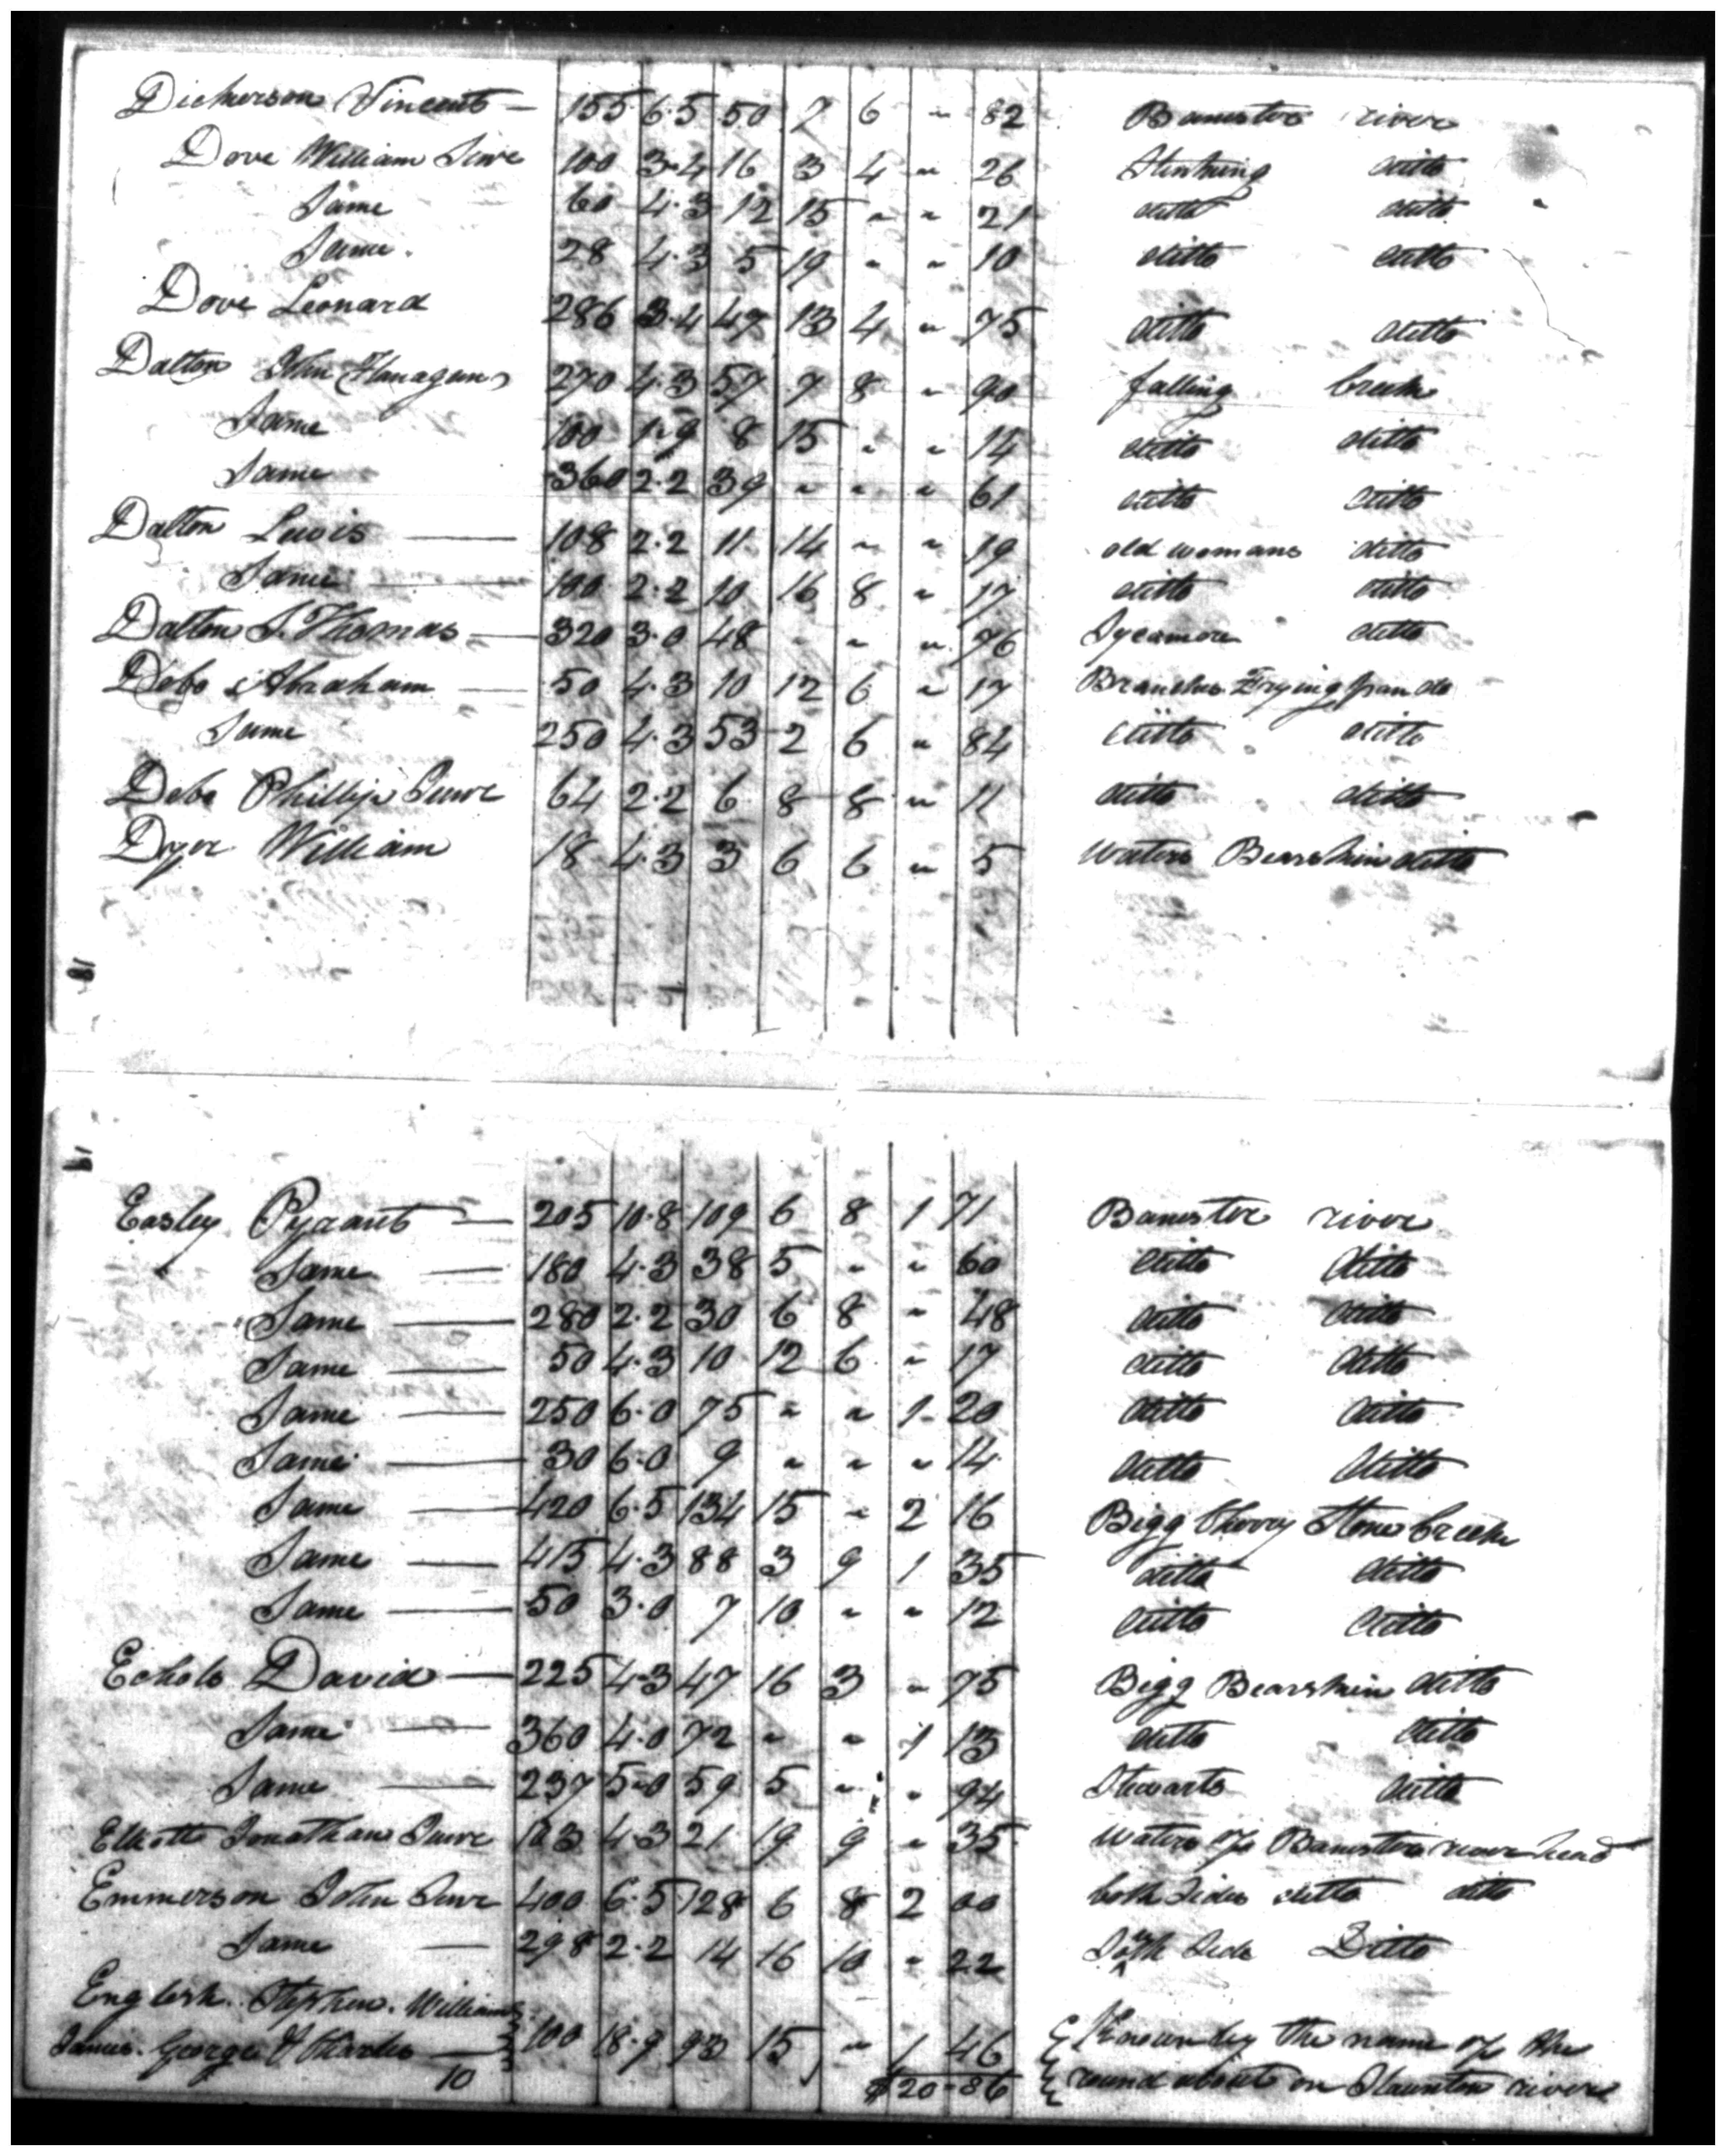 Dickerson Vincent — 155 6.5 50 7 6 " 82 Banister river
Dove William Senr 100 3.4 16 3 4 " 26 Stinking ditto
Same 60 4.3 12 15 " " 21 ditto ditto
Same 28 4.3 5 19 " " 10 ditto ditto
Dove Leonard 286 3.4 47 13 4 " 75 ditto ditto
Dalton John Flanagan 270 4.3 57 7 8 " 90 falling creek
Same 100 1.9 8 15 " " 14 ditto ditto
Same 360 2.2 39 " " " 61 ditto ditto
Dalton Lewis — 108 2.2 11 14 " " 19 old womans ditto
Same — 100 2.2 10 16 8 " 17 ditto ditto
Dalton S. Thomas — 320 3.0 48 " " " 76 Sycamore ditto
Debo Abraham — 50 4.3 10 12 6 " 17 Branches Frying pan do
Same 250 4.3 53 2 6 " 84 ditto ditto
Debo Phillip Senr 64 2.2 6 8 8 " 11 ditto ditto
Dyer William 18 4.3 3 6 6 " 5 Waters Bearskin ditto
Easley Pyrant — 205 10.8 109 6 8 1 71 Banister river
Same — 180 4.3 38 5 " " 60 ditto ditto
Same — 280 2.2 30 6 8 " 48 ditto ditto
Same — 50 4.3 10 12 6 " 17 ditto ditto
Same — 250 6.0 75 " " 1 20 ditto ditto
Same — 30 6.0 9 " " " 14 ditto ditto
Same — 420 6.5 134 15 " 2 16 Bigg Cherry Stone Creek
Same — 415 4.3 88 3 9 1 35 ditto ditto
Same — 50 3.0 7 10 " " 12 ditto ditto
Echols David — 225 4.3 47 16 3 " 75 Bigg Bearskin ditto
Same — 360 4.0 72 " " 1 15 ditto ditto
Same — 237 5.0 59 5 " " 94 Stewarts ditto
Elliott Jonathan Senr 103 4.3 21 19 9 " 35 waters of Banister river head
Emmerson John Senr 400 6.5 128 6 8 2 00 both Sides ditto ditto
Same — 298 2.2 14 16 10 " 22 South Side Ditto
English Stephen. William
James. George & Charles — 100 18.9 93 15 " 1 46 Known by the name of the
10 $20=86 round about on Staunton river